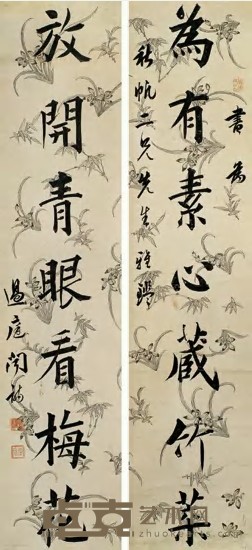 書為
為有素心藏竹葉
秋帆二兄先生雅鑒
放開青眼看梅花
卓克艺术网